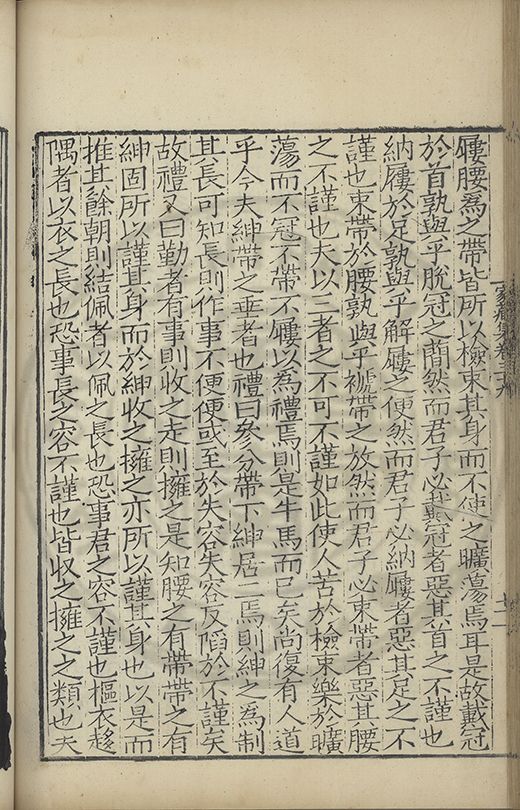 屨腰爲之帶皆所以檢束其身而不使之曠蕩焉耳是故戴冠
於首孰與乎脫冠之蕳然而君子必戴冠者惡其首之不謹也
納屨於足孰與乎解屨之便然而君子必納屨者惡其足之不
謹也束帶於腰孰與乎褫帶之放然而君子必束帶者惡其腰
之不謹也夫以三者之不可不謹如此使人苦於檢束樂於曠
蕩而不冠不帶不屨以爲禮焉則是牛馬而已矣尚復有人道
乎今夫紳帶之垂者也禮曰參分帶下紳居二焉則紳之爲制
其長可知長則作事不便便或至於失容失容反陷於不謹矣
故禮又曰勤者有事則收之走則擁之是知腰之有帶帶之有
紳固所以謹其身而於紳收之擁之亦所以謹其身也以是而
推其餘朝則結佩者以佩之長也恐事君之容不謹也樞衣趍
隅者以衣之長也恐事長之容不謹也皆收之擁之之類也夫
家藏集卷三十九